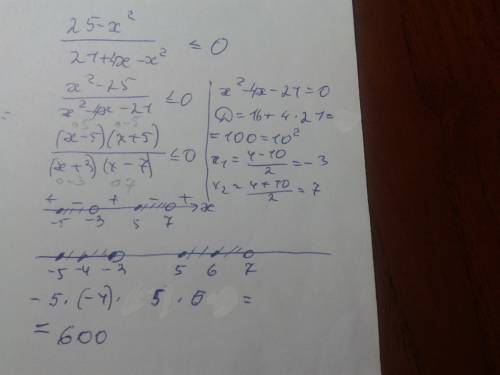 25-x² / 21+4x-x² ≤ 0
x²-25 / x²-4x-21 ≤ 0
(x-5)(x+5) / (x+3)(x-7) ≤ 0
x²-4x-21=0
D=16+4·21=
=100=10²
x₁=4-10/2=-3
x₂=4+10/2=7
+ - + - +
-5 -3 5 7 x
-5 -4 -3 5 6 7
-5·(-4)· 5·6 =
= 600